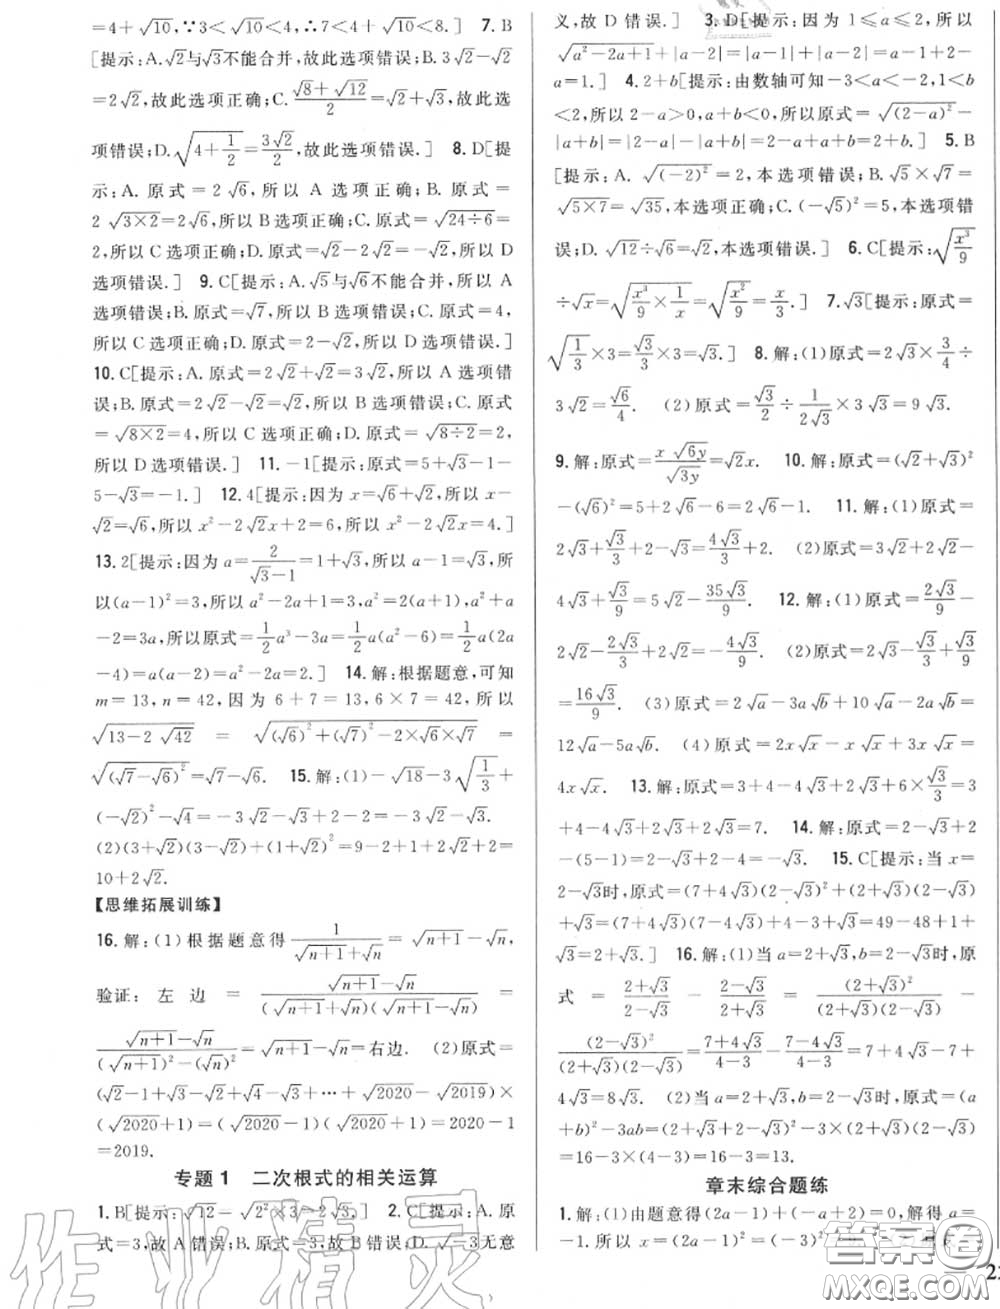 =4+√10,∴7<4+√10<8. 7. B
[提示:A.√2与√3不能合并,故此选项错误;B.3√2-√2=2√2,故此选项正确;C.(√8+√12)/2=√2+√3,故此选
项错误;D.√(4+1/2)=3√2/2,故此选项错误.] 8. D[提
示:A. 原式=2√6,所以 A 选项正确;B. 原式=
2√(3×2)=2√6,所以 B 选项正确;C. 原式=√(24÷6)=
2,所以 C 选项正确;D. 原式=√2-2√2=-√2,所以 D
选项错误.] 9. C[提示:A.√5与√6不能合并,所以 A
选项错误;B. 原式=√7,所以 B 选项错误;C. 原式=4,
所以 C 选项正确;D. 原式=2-√2,所以 D 选项错误.]
10. C[提示:A. 原式=2√2+√2=3√2,所以 A 选项错
误;B. 原式=2√2-√2=√2,所以 B 选项错误;C. 原式
=√(8×2)=4,所以 C 选项正确;D. 原式=√(8÷2)=2,
所以 D 选项错误.] 11. -1[提示:原式=5+√3-1-
5-√3=-1.] 12. 4[提示:因为 x=√6+√2,所以 x-
√2=√6,所以 x²-2√2x+2=6,所以 x²-2√2x=4.]
13. 2[提示:因为 a=2/(√3-1)=1+√3,所以 a-1=√3,所
以(a-1)²=3,所以 a²-2a+1=3,a²=2(a+1),a²+a
-2=3a,所以原式=1/2a³-3a=1/2a(a²-6)=1/2a(2a
-4)=a(a-2)=a²-2a=2.] 14. 解:根据题意,可知
m=13,n=42,因为 6+7=13,6×7=42,所以
√(13-2√42) = √((√6)²+(√7)²-2×√6×√7) =
√((√7-√6)²)=√7-√6. 15. 解:(1)-√18-3√(1/3)+
(-√2)²-√4=-3√2-√3+2-2=-3√2-√3.
(2)(3+√2)(3-√2)+(1+√2)²=9-2+1+2√2+2=
10+2√2.
【思维拓展训练】
16. 解:(1)根据题意得 1/(√(n+1)+√n)=√(n+1)-√n,
验证:左边=(√(n+1)-√n)/((√(n+1)+√n)(√(n+1)-√n))=
(√(n+1)-√n)/((√(n+1))²-(√n)²)=√(n+1)-√n=右边. (2)原式=
(√2-1+√3-√2+√4-√3+⋯+√2020-√2019)×
(√2020+1)=(√2020-1)(√2020+1)=2020-1
=2019.
专题 1 二次根式的相关运算
1. B[提示:√12-√(2²×3)=2√3.] 2. C[提示:A. 原
式=3,故 A 错误;B. 原式=3,故 B 错误;D.√-3无意
义,故 D 错误.] 3. D[提示:因为 1≤a≤2,所以
√(a²-2a+1)+|a-2|=|a-1|+|a-2|=a-1+2-
a=1.] 4. 2+b[提示:由数轴可知-3<a<-2,1<b
<2,所以 2-a>0,a+b<0,所以原式=√((2-a)²)-
|a+b|=|2-a|-|a+b|=2-a+a+b=2+b.] 5. B
[提示:A. √((-2)²)=2,本选项错误;B. √5×√7=
√(5×7)=√35,本选项正确;C. (-√5)²=5,本选项错
误;D. √12÷√6=√2,本选项错误.] 6. C[提示:√(x³/9)
÷√x=√(x³/9×1/x)=√(x²/9)=x/3.] 7. √3[提示:原式=
√(1/3)×3=√3/3×3=√3.] 8. 解:(1)原式=2√3×3/4÷
3√2=√6/4. (2)原式=√3/2÷1/(2√3)×3√3=9√3.
9. 解:原式=x√(6y)/√(3y)=√2x. 10. 解:原式=(√2+√3)²
-(√6)²=5+2√6-6=2√6-1. 11. 解:(1)原式=
2√3+√3/3+2-√3=4√3/3+2. (2)原式=3√2+2√2-
4√3+√3/9=5√2-35√3/9. 12. 解:(1)原式=2√3/9-
2√2-2√3/3+√2=-√2-4√3/9. (2)原式=2√3-√3/3+√3/9
=16√3/9. (3)原式=2√a-5a√b+10√a=
12√a-5a√b. (4)原式=2x√x-x√x+3x√x=
4x√x. 13. 解:原式=3+4-4√3+2√3+6×√3/3=3
+4-4√3+2√3+2√3=7. 14. 解:原式=2-√3+2
-(5-1)=2-√3+2-4=-√3. 15. C[提示:当 x=
2-√3时,原式=(7+4√3)(2-√3)²+(2+√3)(2-√3)
+√3=(7+4√3)(7-4√3)+4-3+√3=49-48+1
+√3=2+√3.] 16. 解:(1)当 a=2+√3,b=2-√3时,原
式=(2+√3)/(2-√3)-(2-√3)/(2+√3)=(2+√3)²/((2+√3)(2-√3))-
(2-√3)²/((2+√3)(2-√3))=(7+4√3)/(4-3)-(7-4√3)/(4-3)=7+4√3-7+
4√3=8√3. (2)当 a=2+√3,b=2-√3时,原式=(a
+b)²-3ab=(2+√3+2-√3)²-3×(2+√3)(2-√3)
=16-3×(4-3)=16-3=13.
章末综合题练
1. 解:(1)由题意得(2a-1)+(-a+2)=0,解得 a=
-1.所以 x=(2a-1)²=(-2-1)²=(-3)²=9.
作业精灵
答案圈
MXQE.COM